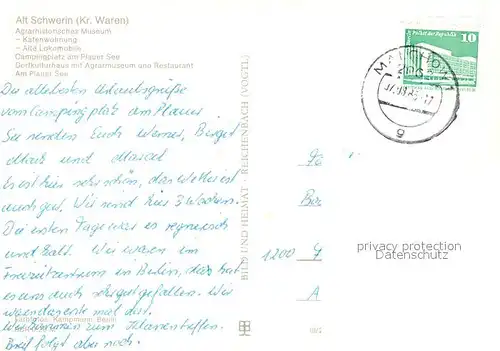 Alt Schwerin (Kr. Waren)
Agrarhistorisches Museum
– Katenwohnung
– Alte Lokomobile
Campingplatz am Plauer See
Dorfkulturhaus mit Agrarmuseum und Restaurant
Am Plauer See
Die allerbesten Urlaubsgrüße
vom Campingplatz am Plauer
See senden Euch Werner, Birgit
Maik und Marcel
Es ist hier sehr schön, das Wetter ist
auch gut. Wir sind hier 3 Wochen.
Die ersten Tage war es regnerisch
und kalt. Wir waren im
Freizeitzentrum in Berlin, das hat
es uns auch sehr gut gefallen. Wir
Wir kommen zum Klassentreffen.
Brief folgt aber noch.
BILD UND HEIMAT · REICHENBACH (VOGTL)
Palast der Republik
10
MALCHOW 1
2063
g
1200
A
privacy protection
Datenschutz